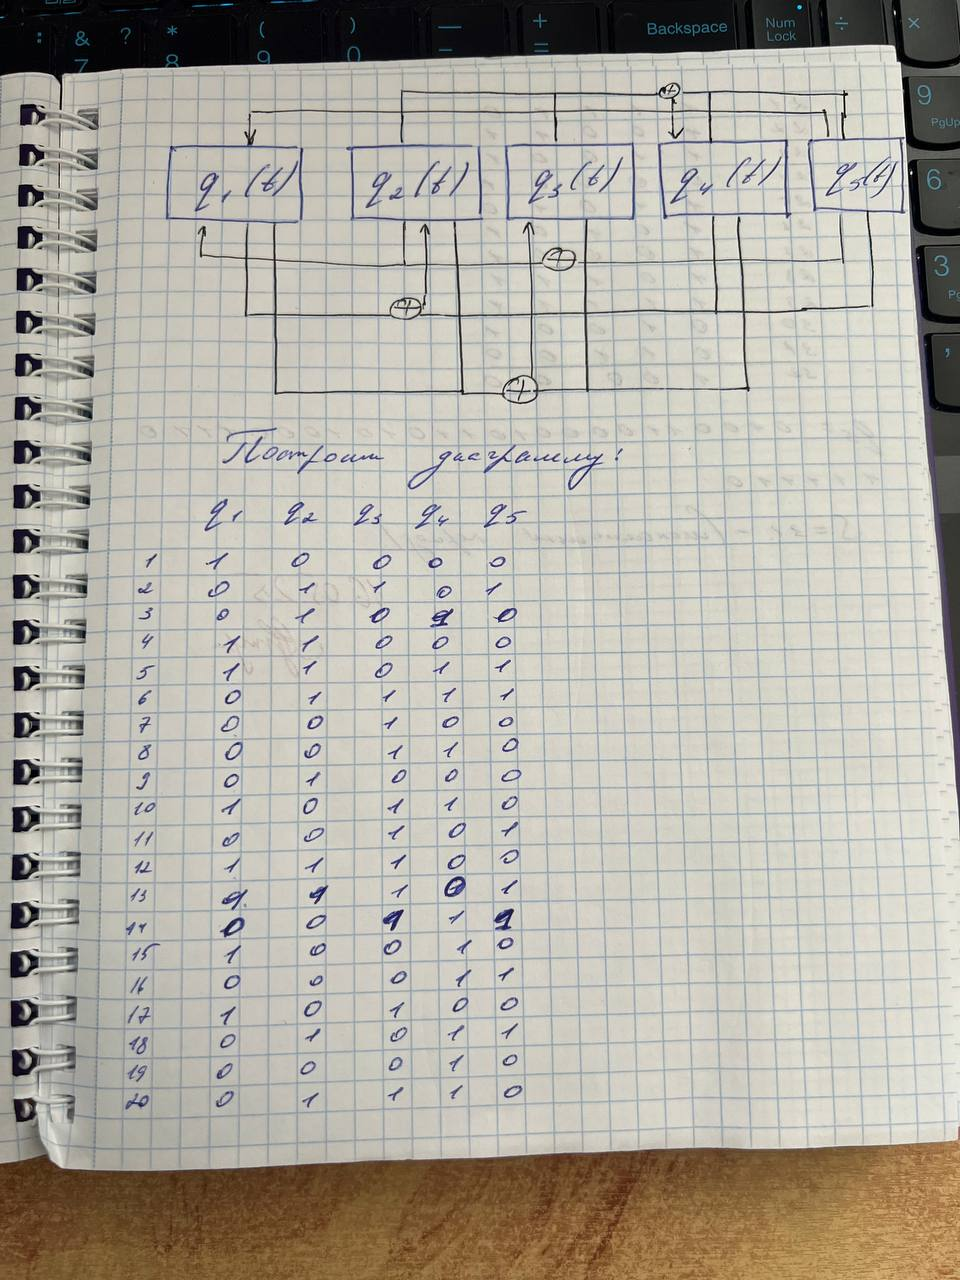 : & ? * ( ) — + Backspace Num Lock ÷ ×
7 8 9 0 - =
9
PgUp
6
3
q1(t) q2(t) q3(t) q4(t) q5(t)
Построим диаграмму:
q1 q2 q3 q4 q5
1 1 0 0 0 0
2 0 1 1 0 1
3 0 1 0 1 0
4 1 1 0 0 0
5 1 1 0 1 1
6 0 1 1 1 1
7 0 0 1 0 0
8 0 0 1 1 0
9 0 1 0 0 0
10 1 0 1 1 0
11 0 0 1 0 1
12 1 1 1 0 0
13 1 1 1 0 1
14 0 0 1 1 1
15 1 0 0 1 0
16 0 0 0 1 1
17 1 0 1 0 0
18 0 1 0 1 1
19 0 0 0 1 0
20 0 1 1 1 0